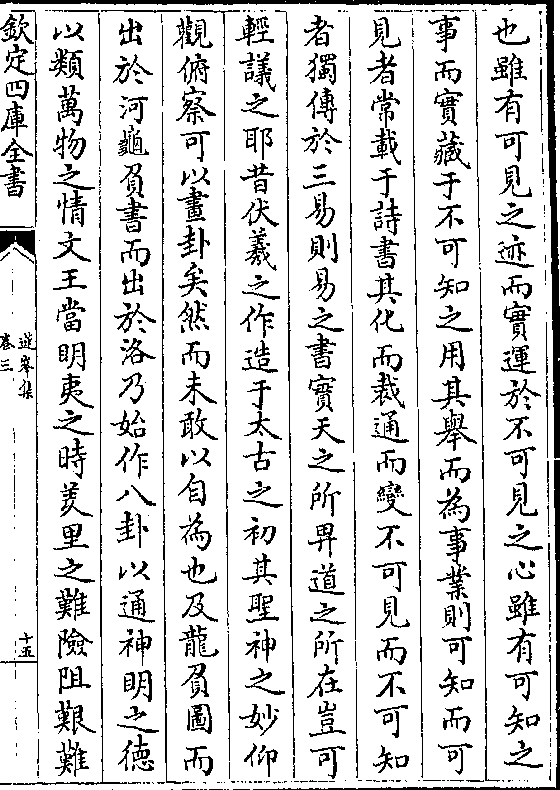 也雖有可見之迹而實運於不可見之心雖有可知之
事而實藏于不可知之用其舉而為事業則可知而可
見者常載于詩書其化而裁通而變不可見而不可知
者獨傳於三易則易之書實天之所畀道之所在豈可
輕議之耶昔伏羲之作造于太古之初其聖神之妙仰
觀俯察可以畫卦矣然而未敢以自為也及龍負圖而
出於河龜負書而出於洛乃始作八卦以通神明之德
以類萬物之情文王當明夷之時羑里之難險阻艱難
欽定四庫全書
卷三
十五